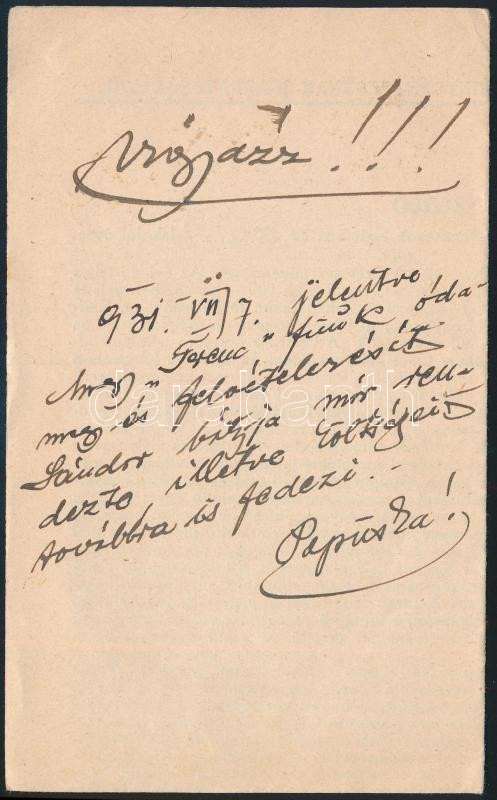 Vigyázz!!!
931. VII/7. jelentve
meg "Ferenc" fiúk óda-
meg és felvételezését
Sándor bátyja már ren-
dezte illetve költségeit
továbbra is fedezi.-
Papuska!
darabanth